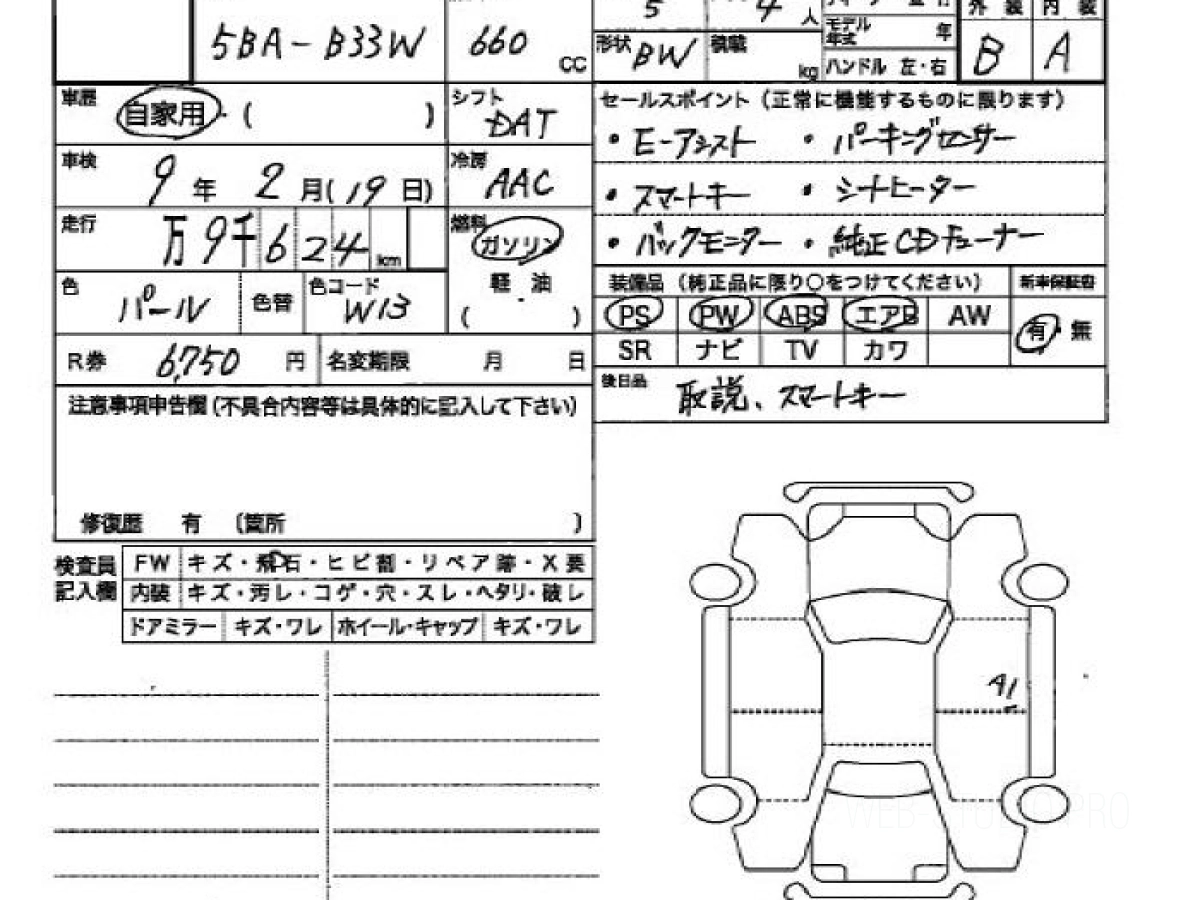 5 4 人 外装 内装
5BA-B33W 660 CC 形状 BW 積載 kg モデル年式 年 ハンドル 左・右 B A
車歴 自家用・( ) シフト DAT セールスポイント (正常に機能するものに限ります)
・E-アシスト ・パーキングセンサー
車検 9年 2月(19日) 冷房 AAC ・スマートキー ・シートヒーター
走行 万9千624km 燃料 ガソリン ・バックモニター ・純正CDチューナー
軽油 ( )
色 パール 色替 色コード W13 装備品 (純正品に限り○をつけてください) 新車保証書
PS PW ABS エアB AW 有・無
R券 6,750 円 名変期限 月 日 SR ナビ TV カワ
後日品 取説、スマートキー
注意事項申告欄(不具合内容等は具体的に記入して下さい)
修復歴 有 (箇所 )
検査員記入欄 FW キズ・飛石・ヒビ割・リペア跡・X要
内装 キズ・汚レ・コゲ・穴・スレ・ヘタリ・破レ
ドアミラー キズ・ワレ ホイール・キャップ キズ・ワレ
A1